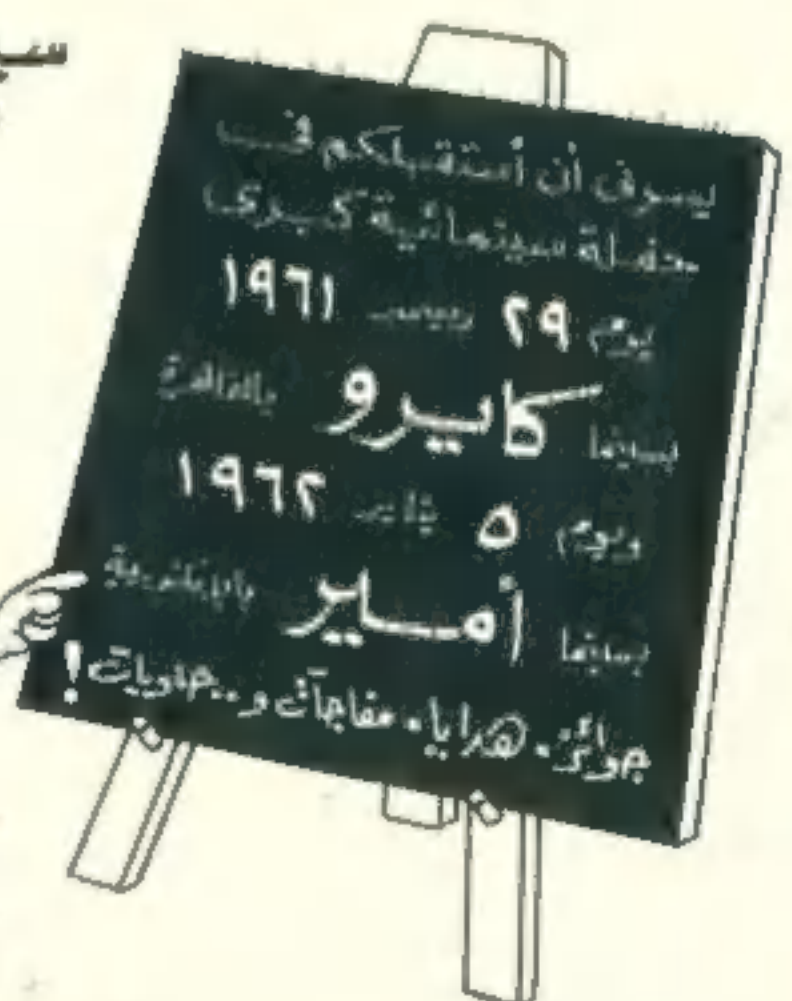 يسرني أن أستقبلكم في
حفلة سينمائية كبرى
يوم ٢٩ ديسمبر ١٩٦١
بسينما كايرو بالقاهرة
ويوم ٥ يناير ١٩٦٢
بسينما أمير بالإسكندرية
جوائز. هدايا. مفاجآت و.. حلويات!